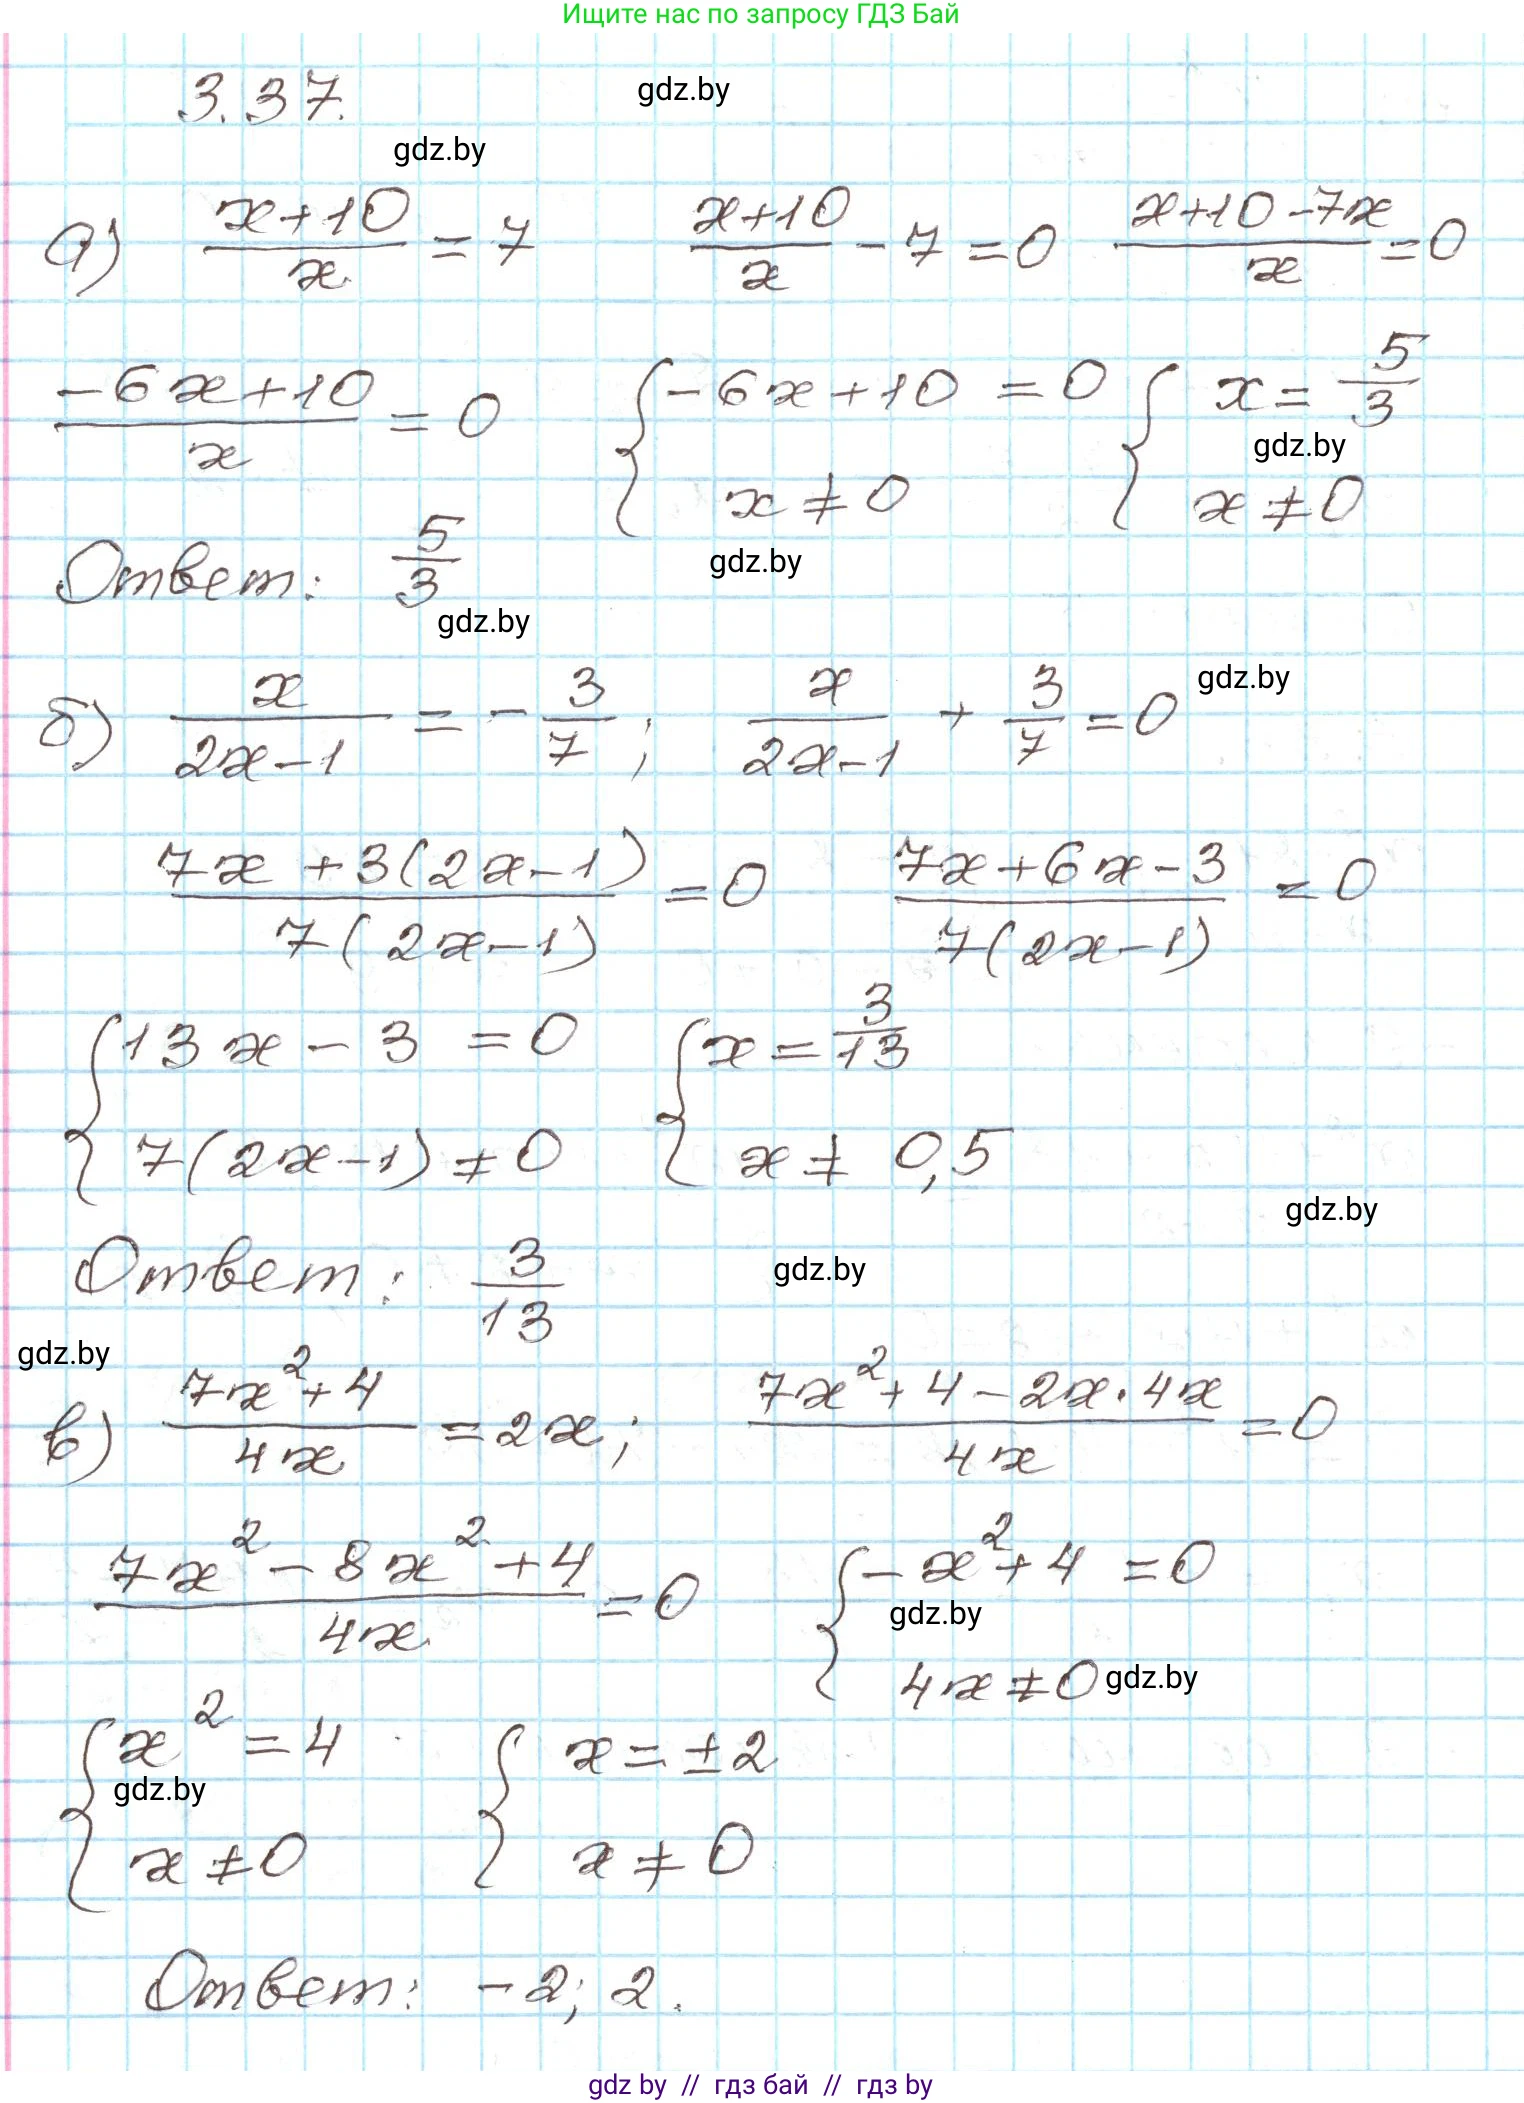 Ищите нас по запросу ГДЗ Бай
3.37. gdz.by
gdz.by
а) (x+10)/x = 7   (x+10)/x - 7 = 0   (x+10-7x)/x = 0
(-6x+10)/x = 0   { -6x+10 = 0   { x = 5/3
gdz.by
x ≠ 0   x ≠ 0
Ответ: 5/3   gdz.by
gdz.by
б) x/(2x-1) = - 3/7 ;   x/(2x-1) + 3/7 = 0   gdz.by
(7x + 3(2x-1))/(7(2x-1)) = 0   (7x+6x-3)/(7(2x-1)) = 0
{ 13x - 3 = 0   { x = 3/13
7(2x-1) ≠ 0   x ≠ 0,5
gdz.by
Ответ: 3/13   gdz.by
gdz.by
в) (7x²+4)/(4x) = 2x ;   (7x²+4-2x·4x)/(4x) = 0
(7x²-8x²+4)/(4x) = 0   { -x²+4 = 0
gdz.by
4x ≠ 0 gdz.by
{ x² = 4   { x = ±2
gdz.by
x ≠ 0   x ≠ 0
Ответ: -2; 2.
gdz by // гдз бай // гдз by